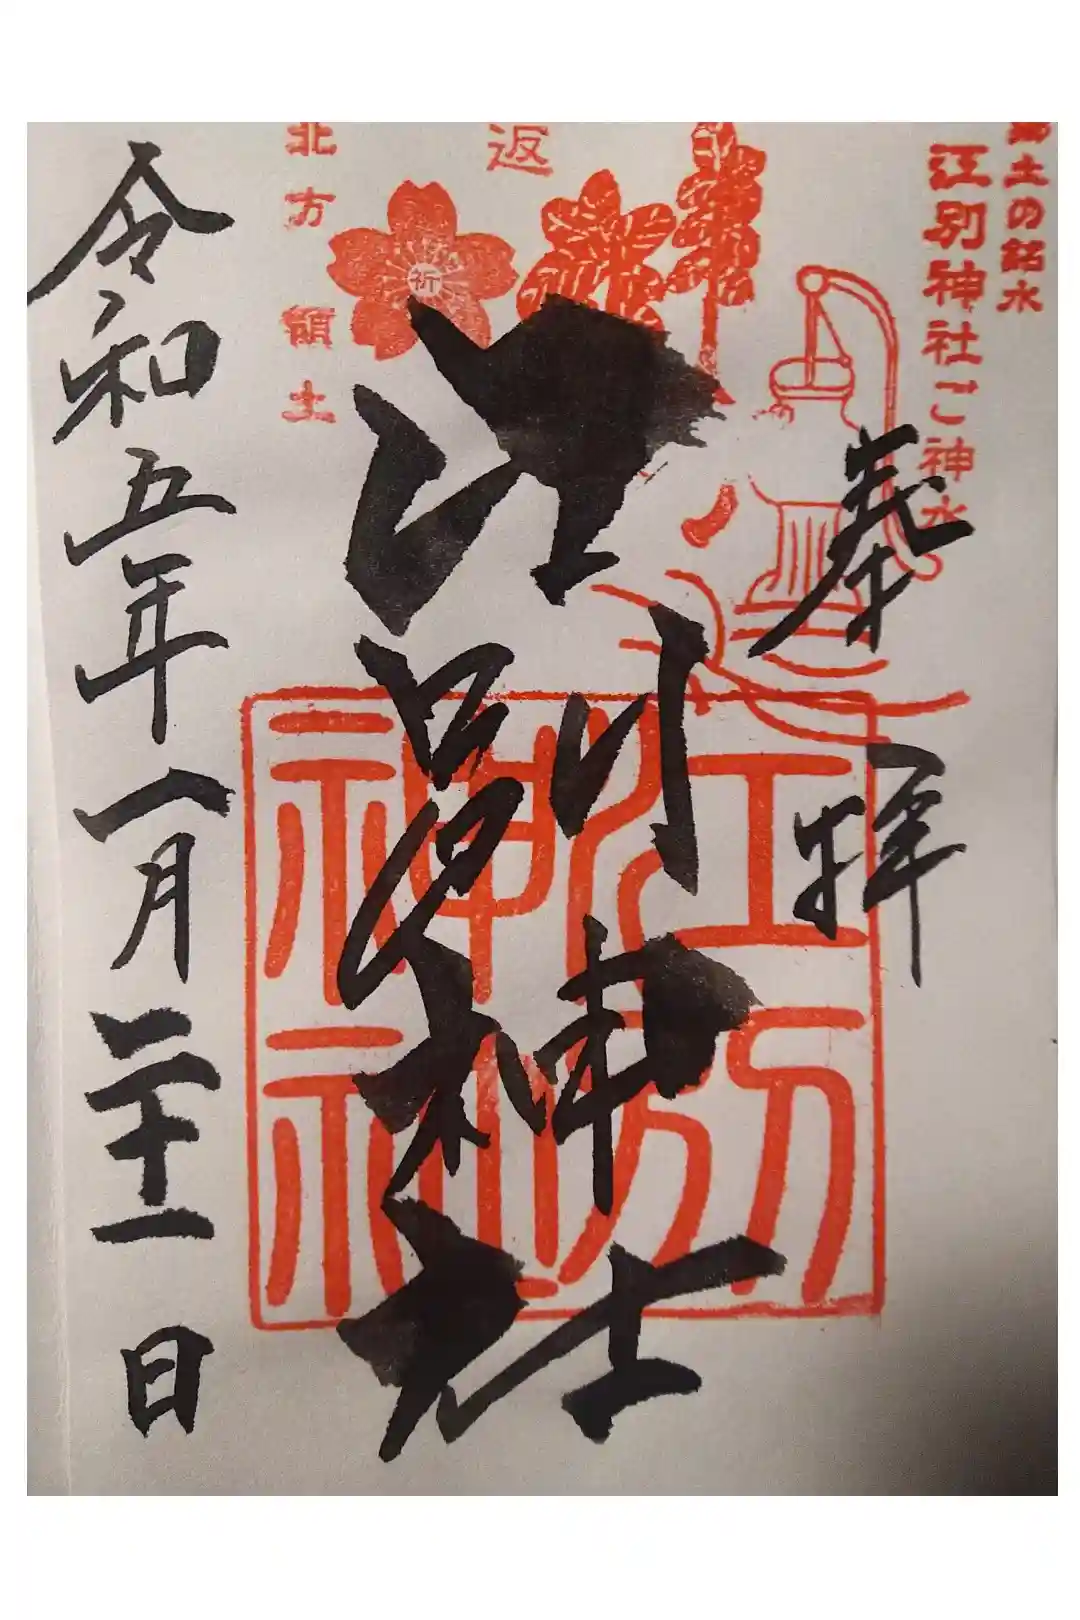 土の銘水
江別神社ご神水
奉拝
返
祈
北方領土
江別神社
江別神社
令和五年一月二十一日